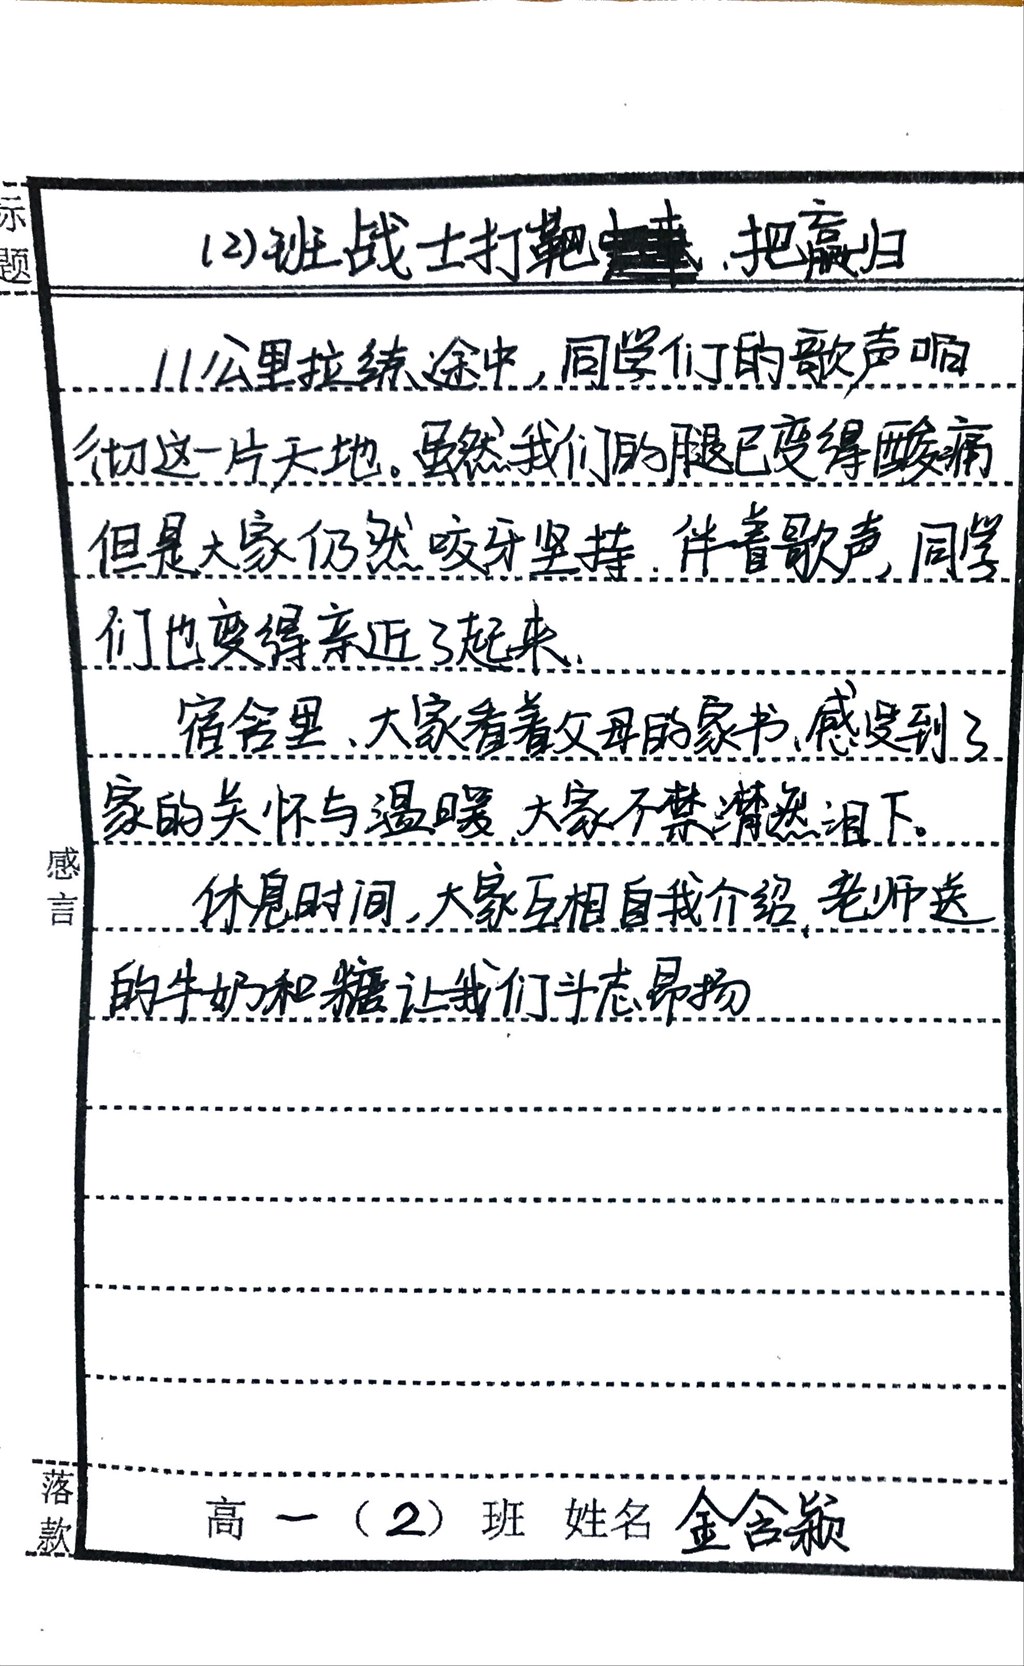 标题
(2)班战士打靶、把赢归
11公里拉练途中,同学们的歌声响
彻这一片天地。虽然我们的腿已变得酸痛
但是大家仍然咬牙坚持.伴着歌声,同学
们也变得亲近了起来.
宿舍里、大家看着父母的家书、感受到了
家的关怀与温暖,大家不禁潸然泪下。
感言
休息时间,大家互相自我介绍,老师送
的牛奶和糖让我们斗志昂扬
落款
高一(2)班 姓名 金含颖